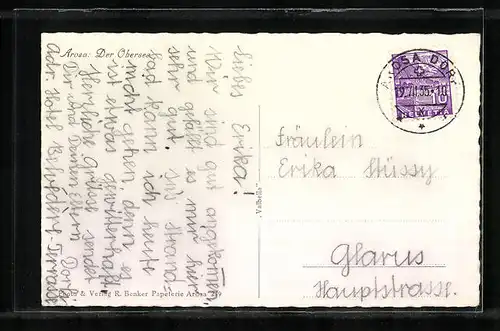 Arosa: Der Obersee
Liebes Erika!
Wir sind gut angekommen,
und gefällt es mir hier
sehr gut. Ins Strand-
bad kann ich heute
nicht gehen, denn es
ist etwas gewitterhaft.
Herzliche Grüsse sendet
Dir und Deinen Eltern
Adr. Hotel Belvédère-Terrasse
Photo & Verlag R. Benker Papeterie Arosa 249
„Valbella“
AROSA DORF
10
HELVETIA
Fräulein
Erika Stüssy
Glarus
Hauptstrasse.